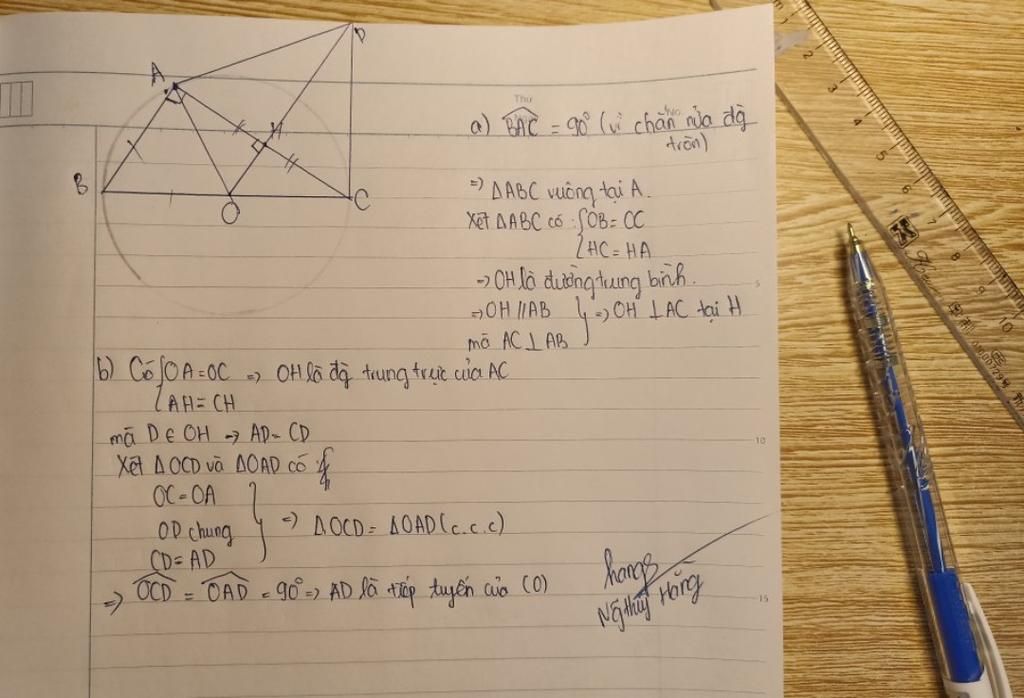 D
A
H
B
O
C
Thứ
a) BAC = 90° (vì chắn nửa đg
tròn)
=> ΔABC vuông tại A.
Xét ΔABC có : { OB = OC
HC = HA
=> OH là đường trung bình.
=> OH // AB
mà AC ⊥ AB } => OH ⊥ AC tại H
b) Có { OA = OC => OH là đg trung trực của AC
AH = CH
mà D ∈ OH -> AD = CD
Xét ΔOCD và ΔOAD có :
OC = OA
OD chung } => ΔOCD = ΔOAD (c.c.c)
CD = AD
=> OCD = OAD = 90° => AD là tiếp tuyến của (O)
hang
Ng thúy Hằng
5
10
15
1
2
3
4
5
6
7
8
9
10